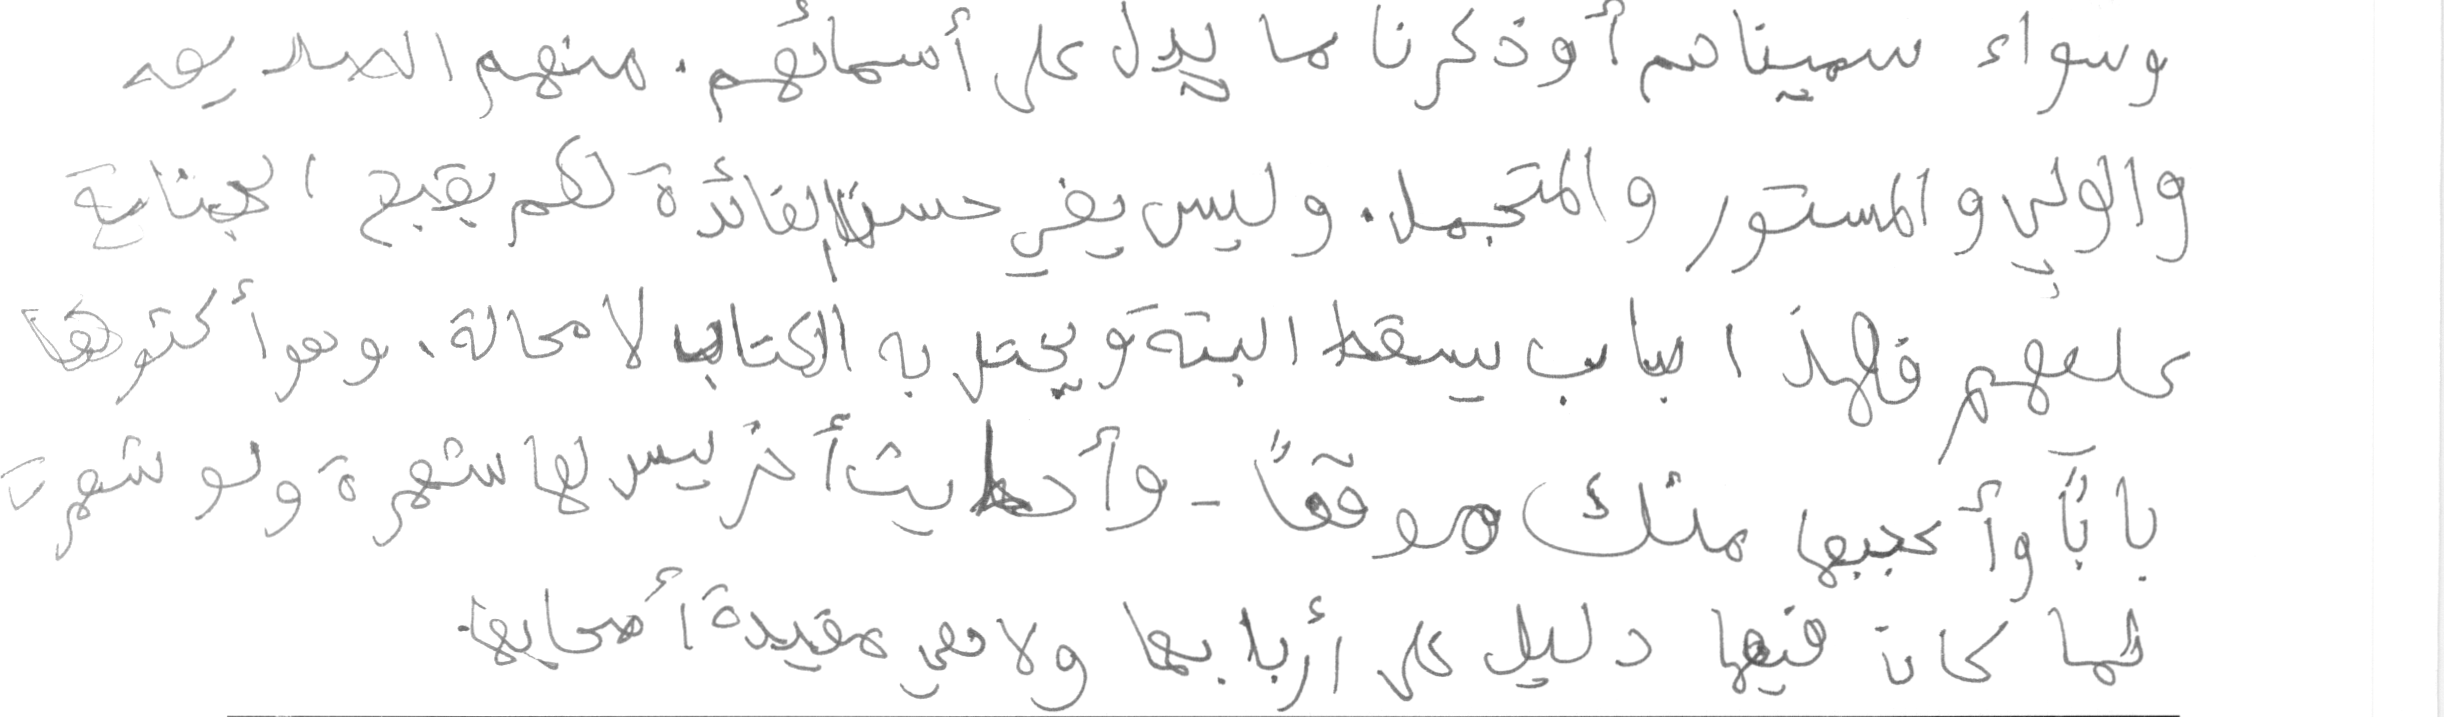 وسواء سميناهم أوذكرنا ما يدل على أسمائهم. منهم الصديق
والولي والمستور والمتجمل. وليس يفي حسن الفائدة لكم بقبح الجناية
عليهم فهذا باب يسقط البتة ويختل به الكتاب لا محالة، وهو أكثرها
بابًا وأعجبها منك موقعًا - وأحاديث أخر ليس لها شهرة ولو شهرت
لما كان فيها دليل على أربابها ولا هي مقيدة أصحابها.